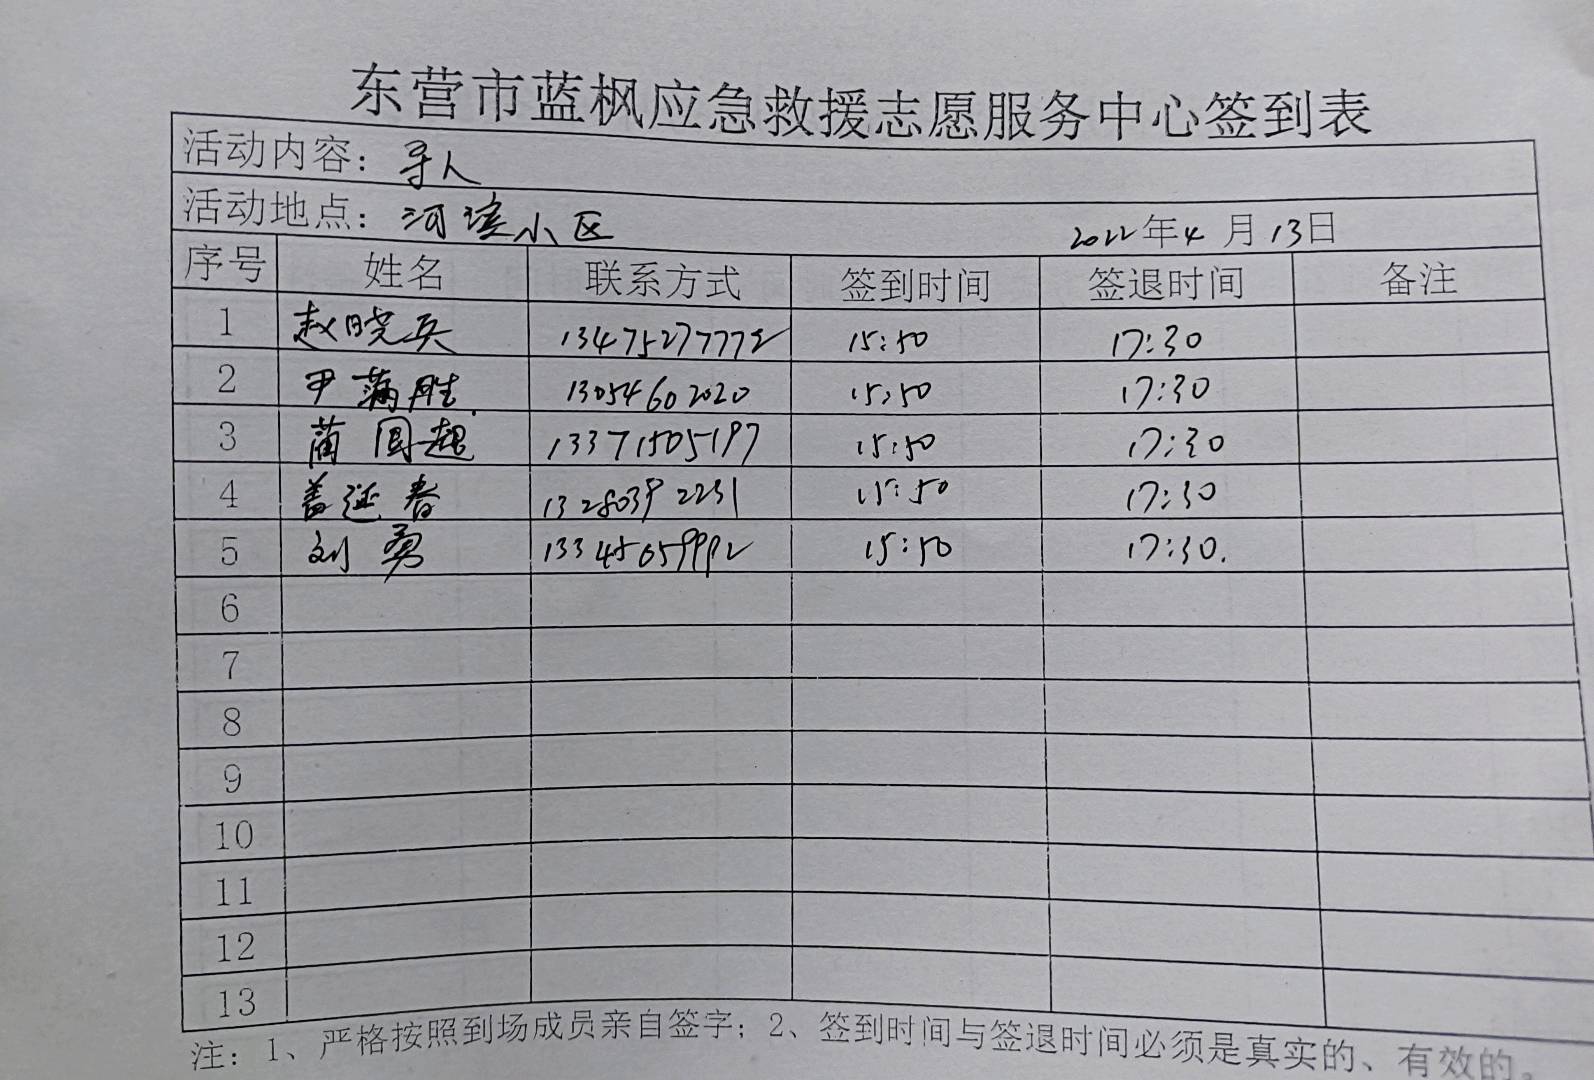 东营市蓝枫应急救援志愿服务中心签到表
活动内容：寻人
活动地点：河滨小区 2022年4月13日
序号 姓名 联系方式 签到时间 签退时间 备注
1 赵晓兵 13475277772 15:50 17:30
2 尹满胜 13054602020 15:50 17:30
3 蔺国超 13371505197 15:50 17:30
4 盖延春 13280392231 15:50 17:30
5 刘勇 15:50 17:30.
6
7
8
9
10
11
12
13
注：1、严格按照到场成员亲自签字；2、签到时间与签退时间必须是真实的、有效的。